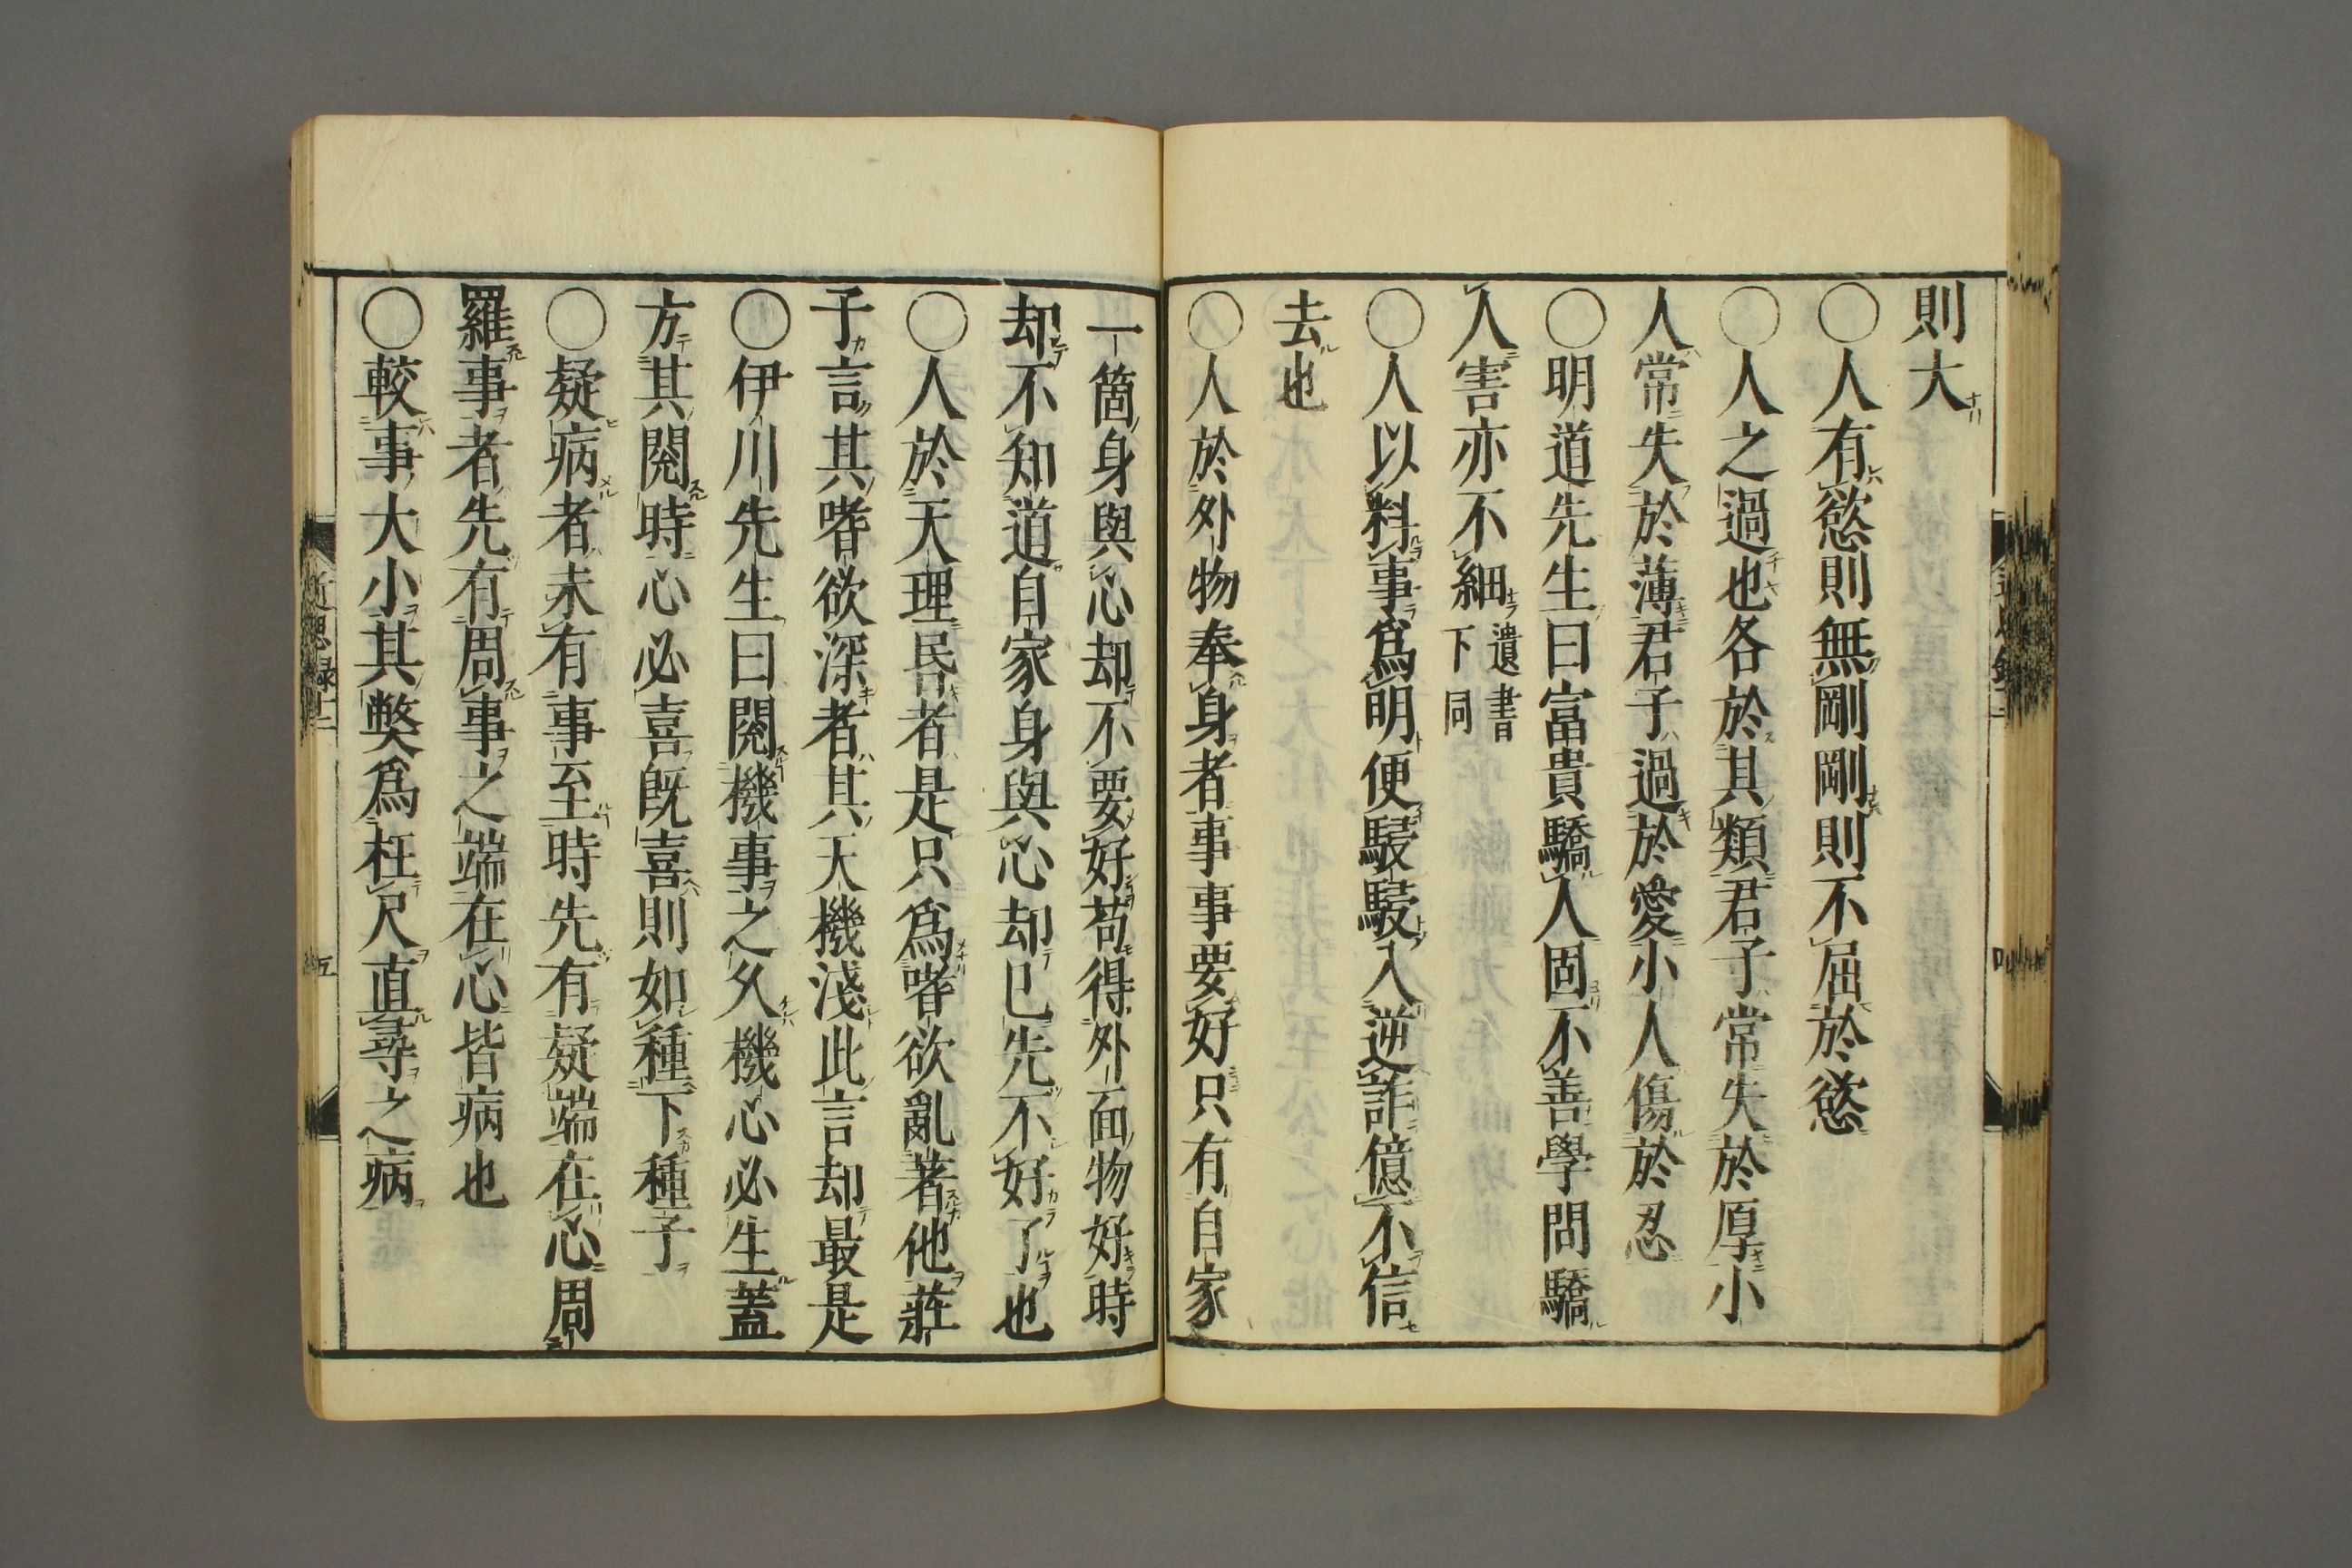 則大
○人有慾則無剛剛則不屈於慾
○人之過也各於其類君子常失於厚小
人常失於薄君子過於愛小人傷於忍
○明道先生曰富貴驕人固不善學問驕
人害亦不細遺書
下同
○人以料事爲明便駸駸入逆詐億不信
去也
○人於外物奉身者事事要好只有自家
一箇身與心却不要好苟得外面物好時
却不知道自家身與心却已先不好了也
○人於天理昏者是只爲嗜欲亂著他莊
子言其嗜欲深者其天機淺此言却最是
○伊川先生曰閱機事之久機心必生蓋
方其閱時心必喜旣喜則如種下種子
○疑病者未有事至時先有疑端在心周
羅事者先有周事之端在心皆病也
○較事大小其弊爲枉尺直尋之病
近思録十二
五